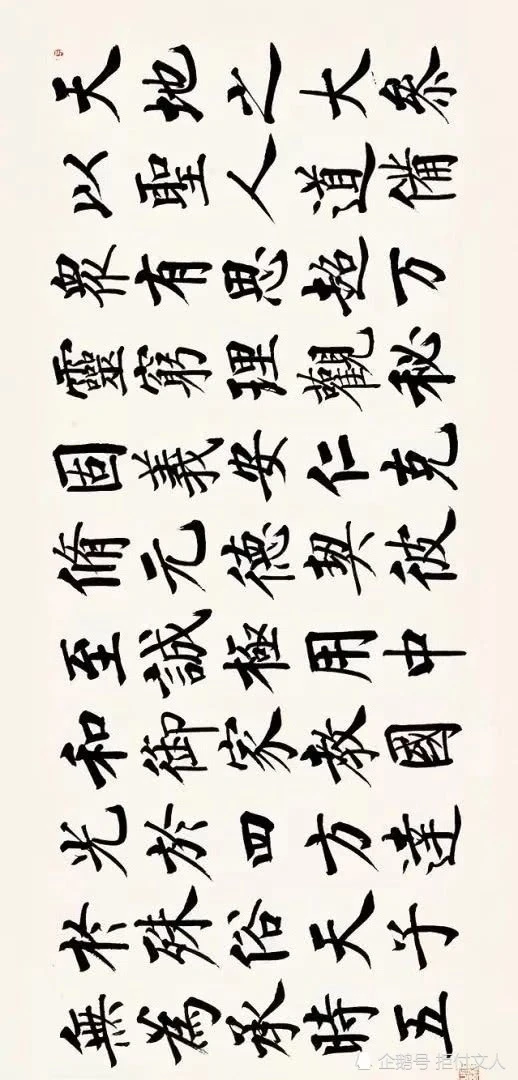 天地之大叅
以聖人道備
衆有思超万
靈窮理觀秘
固義安仁克
脩元德契彼
至誠極用中
和御家教國
光於四方達
於殊俗天子
無為承時五
企鹅号